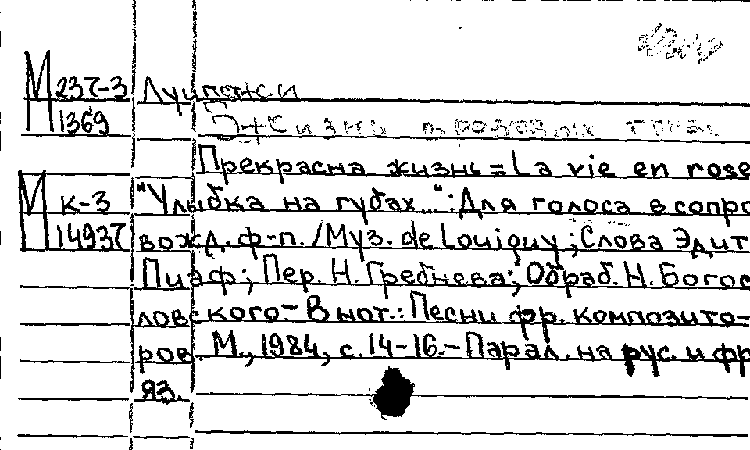 М 237-3 Луипжи
1369 Жизнь в розовых тонах
Прекрасна жизнь = La vie en rose
М к-3 "Улыбка на губах...": Для голоса в сопро
14937 вожд. ф-п. / Муз. de Louiguy; Слова Эдит
Пиаф; Пер. Н. Гребнева; Обраб. Н. Богос
ловского - В нот.: Песни фр. композито-
ров. М., 1984, с. 14-16. - Парал. на рус. и фр
яз.